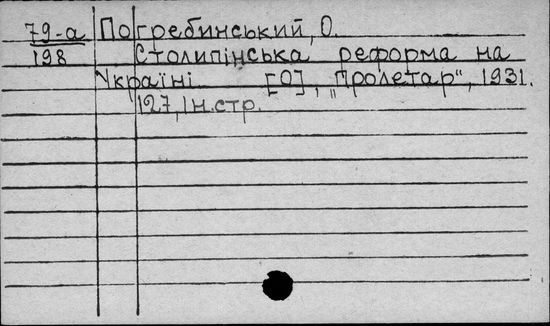 79-а Погребинський, О.
198 Столипінська реформа на
Україні [О], „Пролетар", 1931.
127, Ін.стр.